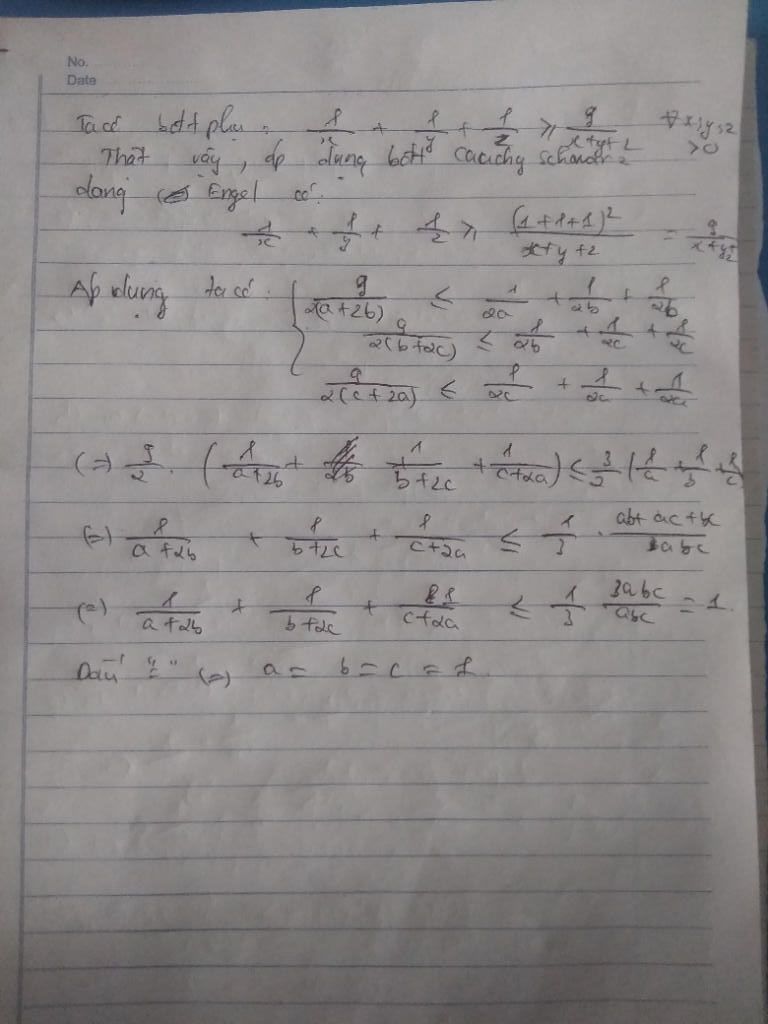 No.
Date
Ta có bđt phụ: 1/x + 1/y + 1/z ≥ 9/(x+y+z) ∀x;y;z >0
Thật vậy, áp dụng bđt cauchy schwarz
dạng Engel có:
1/x + 1/y + 1/z ≥ (1+1+1)²/(x+y+z) = 9/(x+y+z)
Áp dụng ta có: { 9/(2(a+2b)) ≤ 1/2a + 1/2b + 1/2b
9/(2(b+2c)) ≤ 1/2b + 1/2c + 1/2c
9/(2(c+2a)) ≤ 1/2c + 1/2a + 1/2a
(=) 9/2 . (1/(a+2b) + 1/(b+2c) + 1/(c+2a)) ≤ 3/2 (1/a + 1/b + 1/c)
(=) 1/(a+2b) + 1/(b+2c) + 1/(c+2a) ≤ 1/3 . (ab+ac+bc)/abc
(=) 1/(a+2b) + 1/(b+2c) + 1/(c+2a) ≤ 1/3 3abc/abc = 1.
Dấu "=" (=) a = b = c = 1.